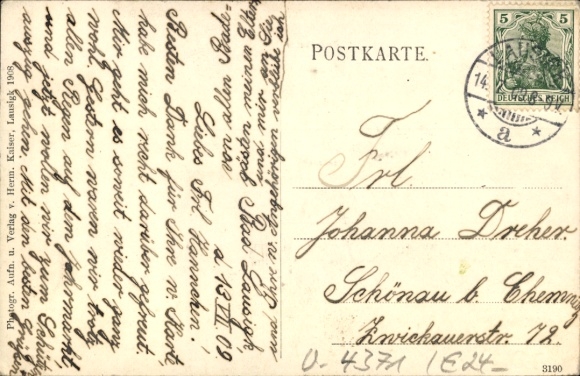 POSTKARTE.
5 5
DEUTSCHES REICH
LAUSIGK
14.
* a *
Frl.
Johanna Dreher.
Schönau b. Chemnitz
Zwickauerstr. 72.
U-4371 /E24-
3190
Photogr. Aufn. u. Verlag v. Herm. Kaiser, Lausigk 1908.
Bad Lausigk
d 13. VI. 09
Liebs Frl Hannchen!
Besten Dank für Ihre w. Kart,
hab mich recht darüber gefreut.
Mir geht es soweit wieder ganz
wohl, Gestern waren wir trotz
allen Regen auf dem Jahrmarkt,
und jetzt wolen wir zum
auszug gehn. Mit d. best.